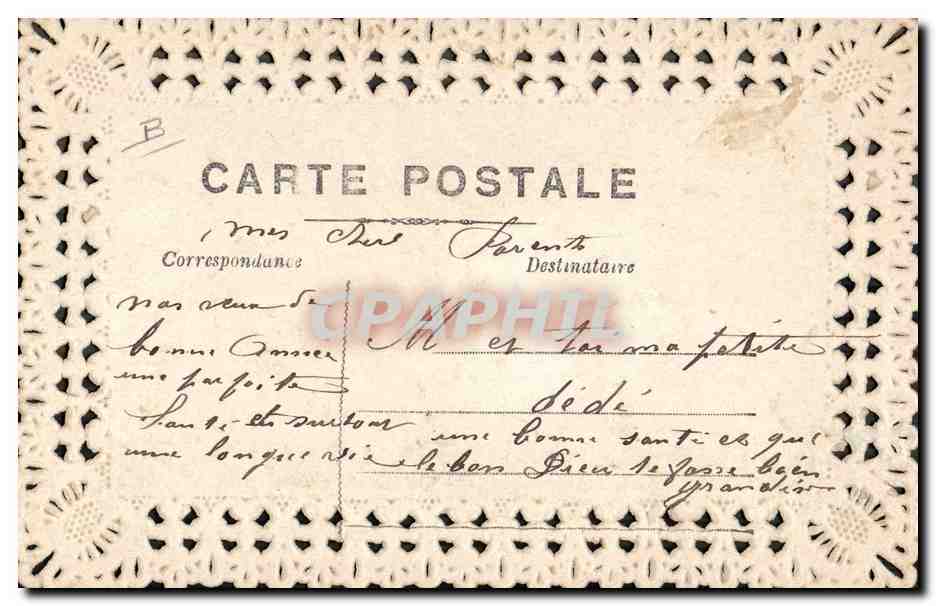 B
CARTE POSTALE
mes cher Parents
Correspondance
Destinataire
CPAPHIL
nos veux de
bonne Année
une parfaite
santé et surtout
une longue vie
M et toi ma petite
dédé
une bonne santé et que
le bon Dieu te fasse bien
grandir